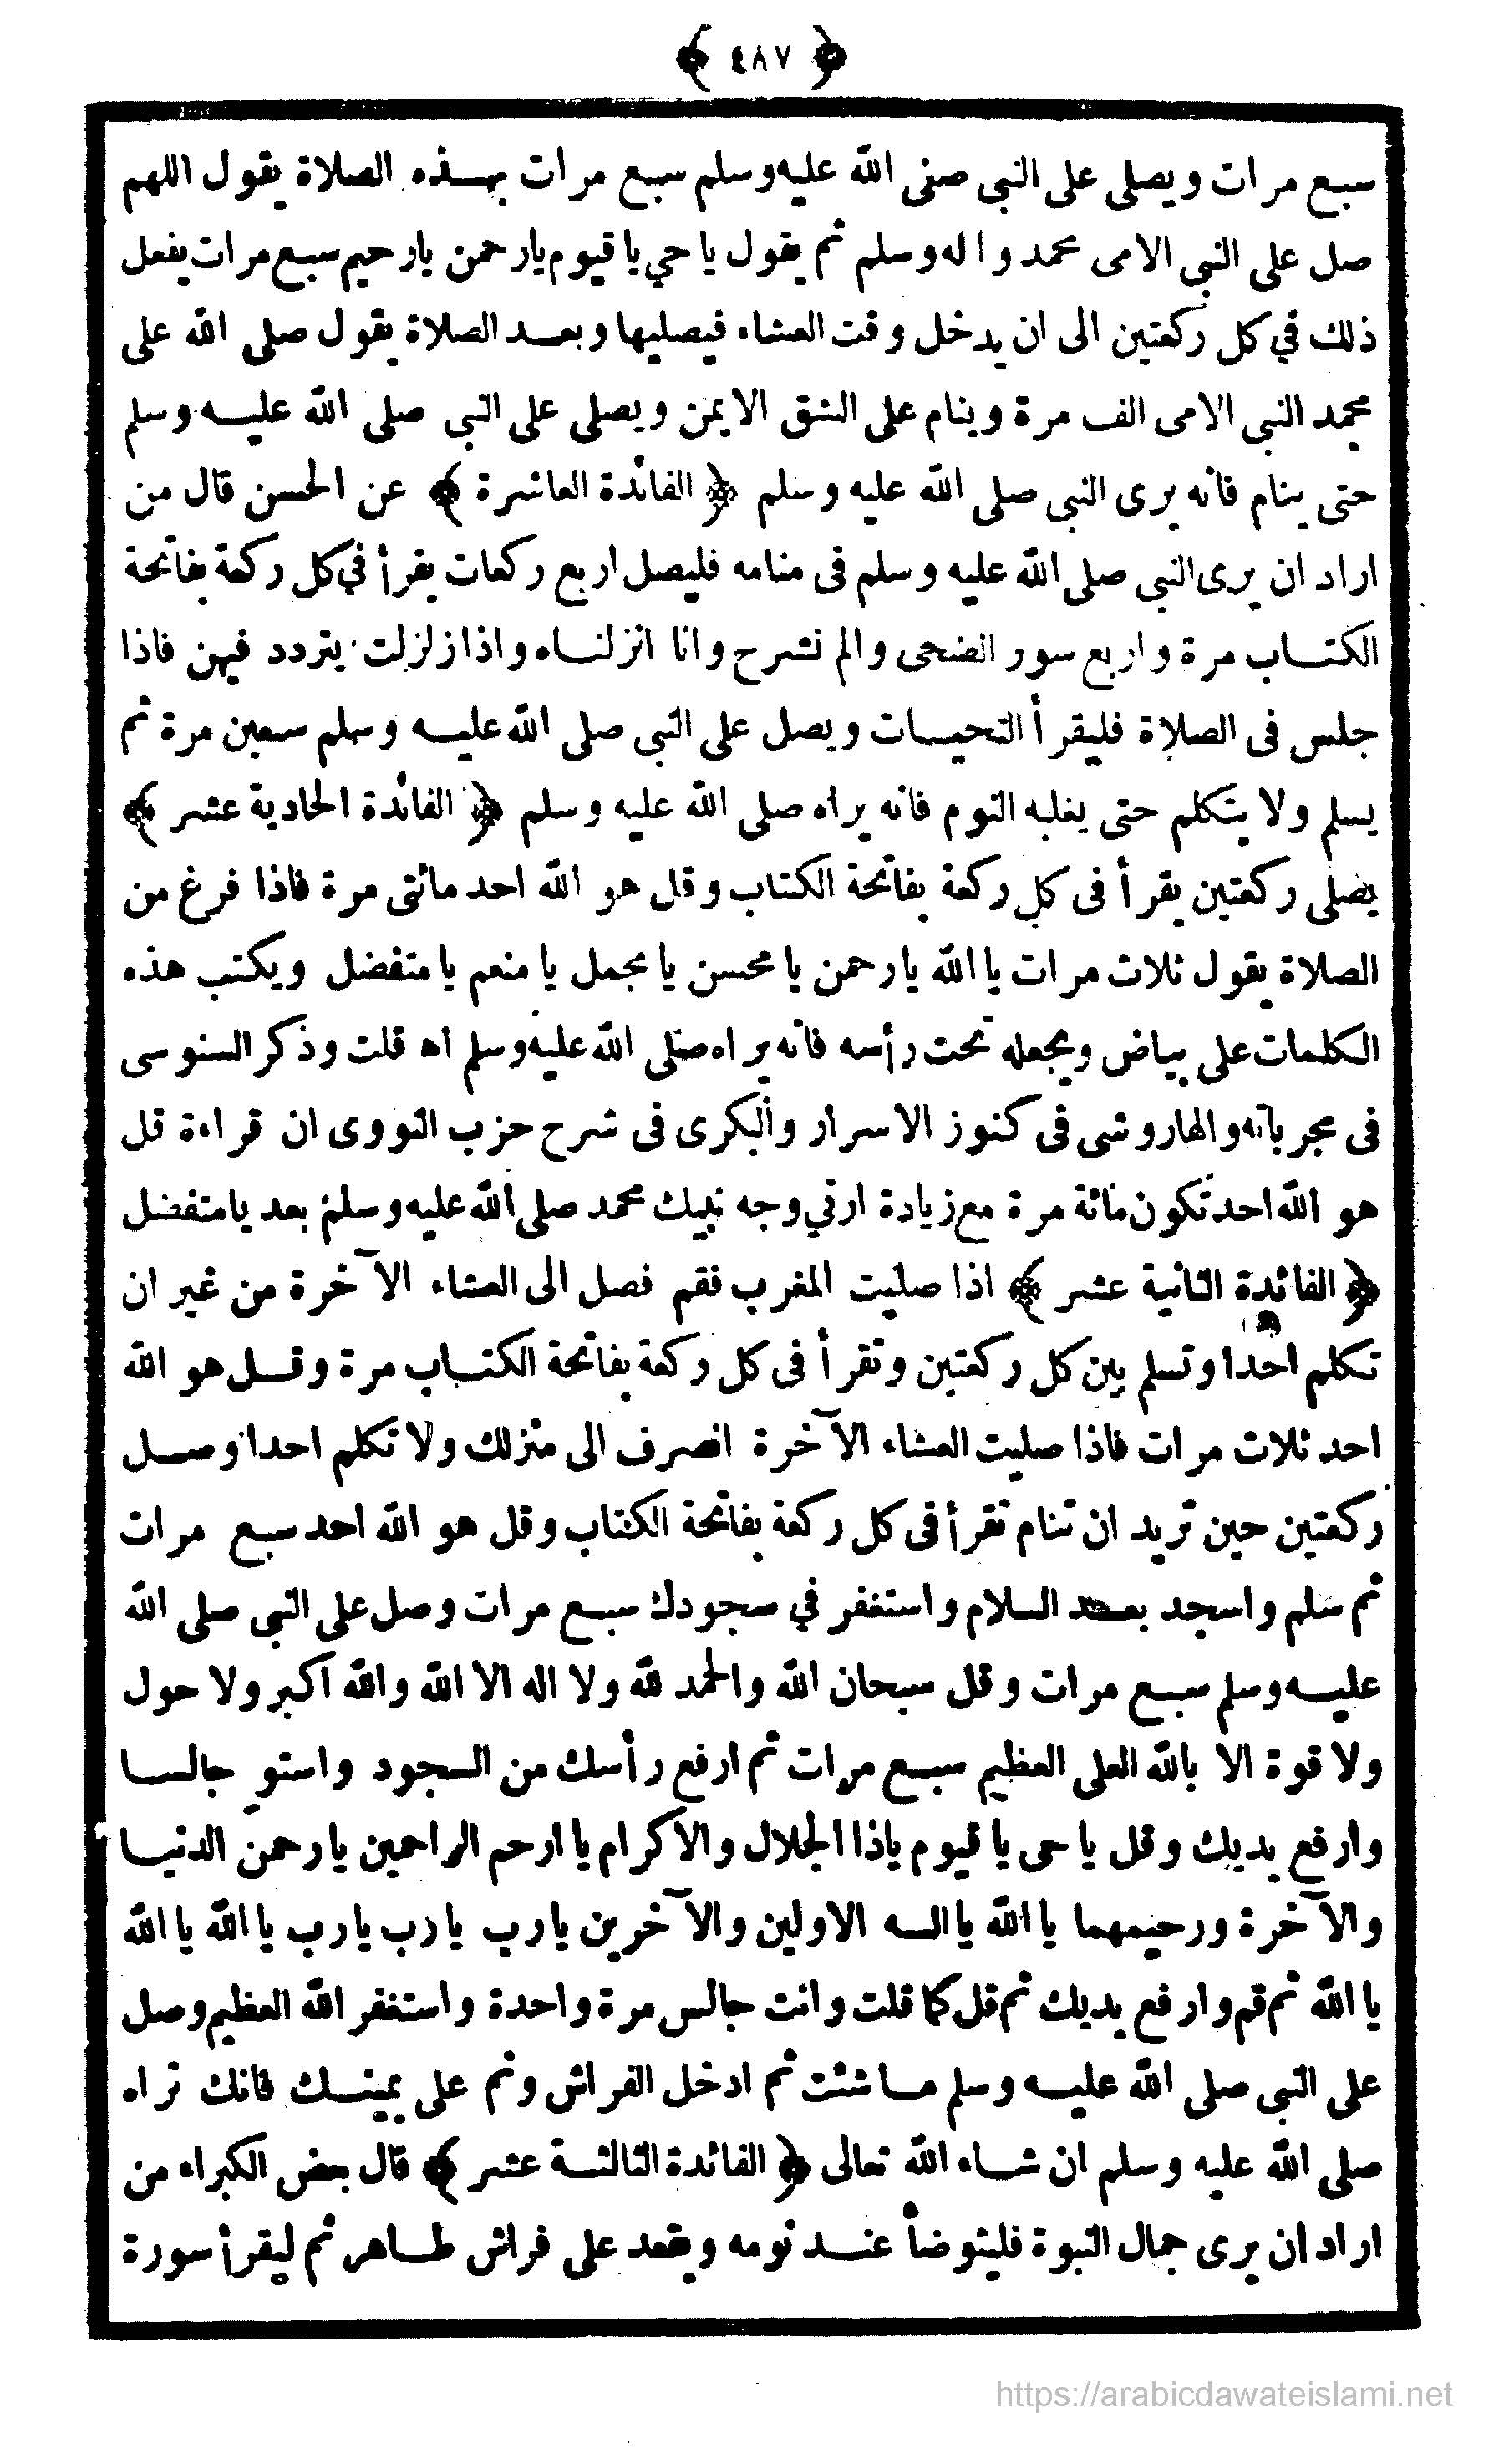 ﴿ ٤٨٧ ﴾
سبع مرات ويصلى على النبى صلى الله عليه وسلم سبع مرات بهذه الصلاة يقول اللهم
صل على النبى الامى محمد واله وسلم ثم يقول يا حي يا قيوم يارحمن يارحيم سبع مرات يفعل
ذلك في كل ركعتين الى ان يدخل وقت العشاء فيصليها وبعد الصلاة يقول صلى الله على
محمد النبى الامى الف مرة وينام على الشق الايمن ويصلى على النبى صلى الله عليه وسلم
حتى ينام فانه يرى النبى صلى الله عليه وسلم ﴿ الفائدة العاشرة ﴾ عن الحسن قال من
اراد ان يرى النبى صلى الله عليه وسلم فى منامه فليصل اربع ركعات يقرأ في كل ركعة بفاتحة
الكتاب مرة واربع سور الضحى والم نشرح وانا انزلناه واذا زلزلت يتردد فيهن فاذا
جلس فى الصلاة فليقرأ التحيات ويصل على النبى صلى الله عليه وسلم سبعين مرة ثم
يسلم ولا يتكلم حتى يغلبه النوم فانه يراه صلى الله عليه وسلم ﴿ الفائدة الحادية عشر ﴾
يصلى ركعتين يقرأ فى كل ركعة بفاتحة الكتاب وقل هو الله احد مائتى مرة فاذا فرغ من
الصلاة يقول ثلاث مرات يا الله يا رحمن يا محسن يا مجمل يا منعم يا متفضل ويكتب هذه
الكلمات على بياض ويجعله تحت رأسه فانه يراه صلى الله عليه وسلم اه قلت وذكر السنوسى
فى مجرباته والهاروشى فى كنوز الاسرار والبكرى فى شرح حزب النووى ان قراءة قل
هو الله احد تكون مائة مرة مع زيادة ارنى وجه نبيك محمد صلى الله عليه وسلم بعد يا متفضل
﴿ الفائدة الثانية عشر ﴾ اذا صليت المغرب فقم فصل الى العشاء الآخرة من غير ان
تكلم احدا وتسلم بين كل ركعتين وتقرأ فى كل ركعة بفاتحة الكتاب مرة وقل هو الله
احد ثلاث مرات فاذا صليت العشاء الآخرة انصرف الى منزلك ولا تكلم احدا وصل
ركعتين حين تريد ان تنام تقرأ فى كل ركعة بفاتحة الكتاب وقل هو الله احد سبع مرات
ثم سلم واسجد بعد السلام واستغفر في سجودك سبع مرات وصل على النبى صلى الله
عليه وسلم سبع مرات وقل سبحان الله والحمد لله ولا اله الا الله والله اكبر ولا حول
ولا قوة الا بالله العلى العظيم سبع مرات ثم ارفع رأسك من السجود واستو جالسا
وارفع يديك وقل يا حى يا قيوم ياذا الجلال والاكرام يا ارحم الراحمين يا رحمن الدنيا
والآخرة ورحيمهما يا الله يا اله الاولين والآخرين يارب يارب يارب يا الله يا الله
يا الله ثم قم وارفع يديك ثم قل كما قلت وانت جالس مرة واحدة واستغفر الله العظيم وصل
على النبى صلى الله عليه وسلم ما شئت ثم ادخل الفراش ونم على يمينك فانك تراه
صلى الله عليه وسلم ان شاء الله تعالى ﴿ الفائدة الثالثة عشر ﴾ قال بعض الكبراء من
اراد ان يرى جمال النبوة فليتوضأ عند نومه ويقعد على فراش طاهر ثم ليقرأ سورة
https://arabicdawateislami.net